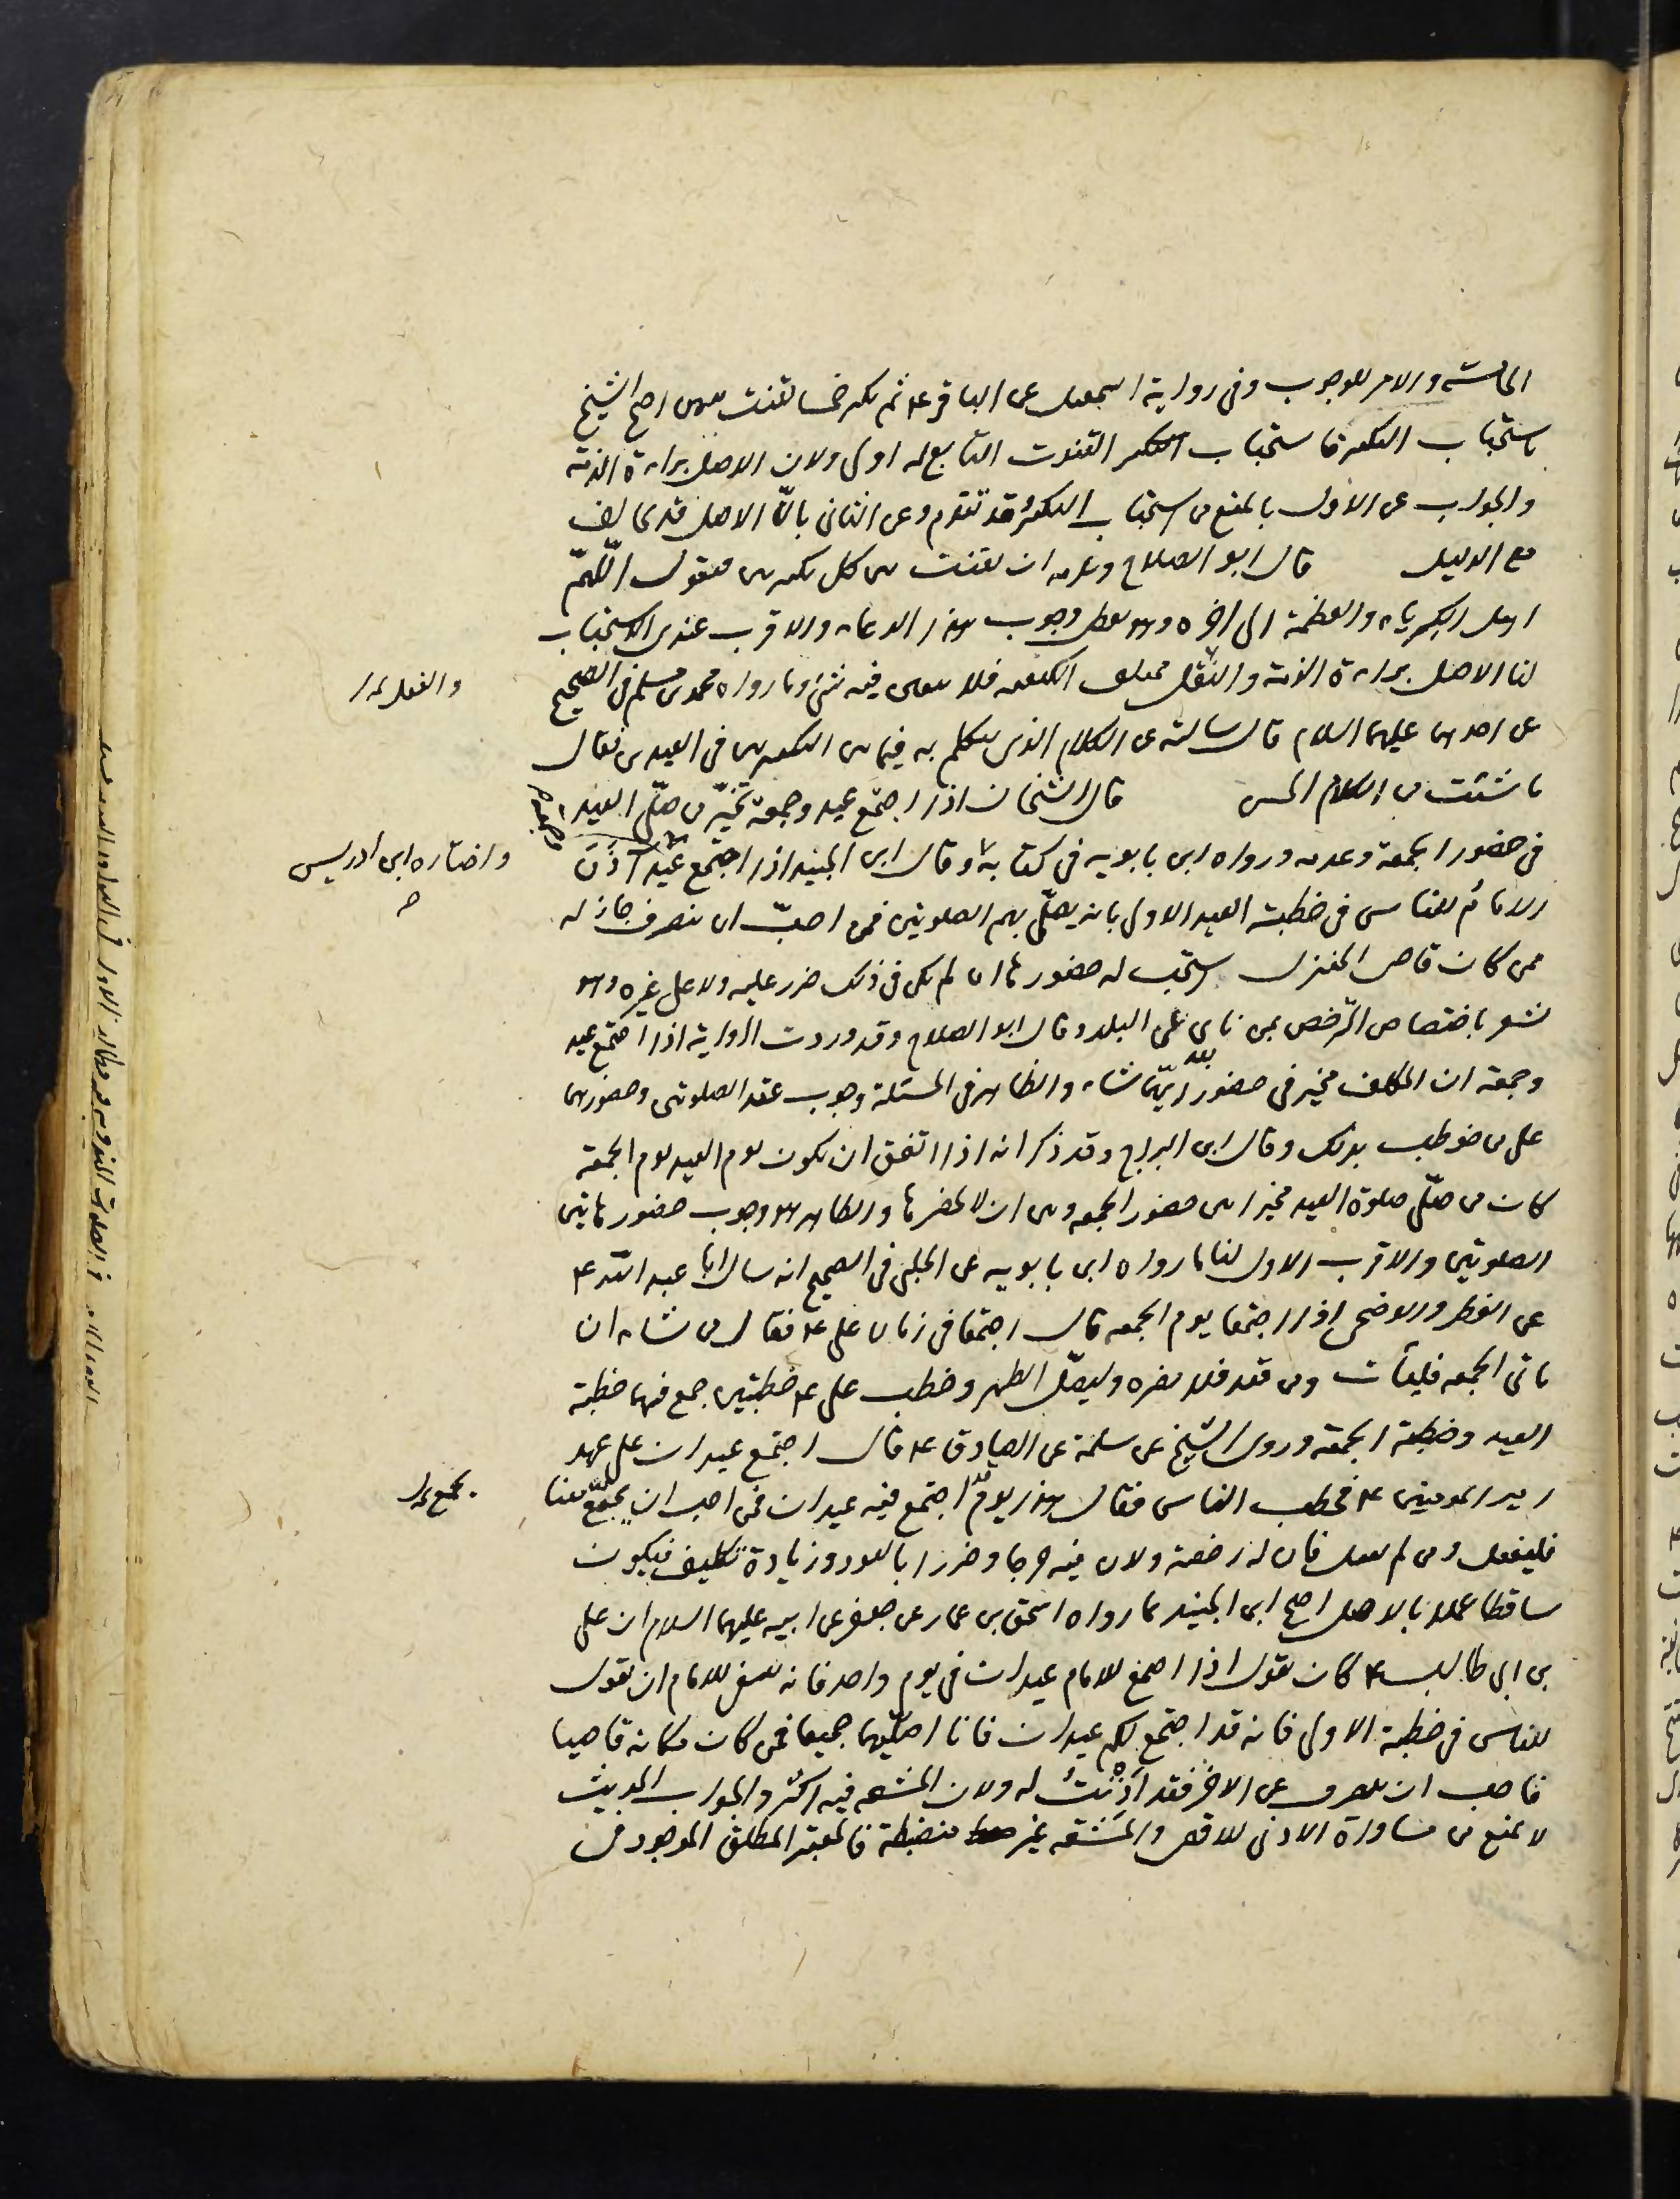 الخامسة والامر للوجوب وفى رواية اسمعيل عن الباقر ع ثم يكبر خمسا يقنت بينهن احتج الشيخ
باستحباب التكبير فاستحباب القنوت التابع له اولى ولان الاصل براءة الذمة
والجواب عن الاول بالمنع من استحباب التكبير وقد تقدم وعن الثانى بانّ الاصل قد يخالف
مع الدليل قال ابو الصلاح ويلزمه ان يقنت بين كل تكبيرتين فيقول اللّهمّ
اهل الكبرياء والعظمة الى اخره وهو يعطى وجوب هذا الدعاء والاقرب عندى الاستحباب
لنا الاصل براءة الذمة والنقل مختلف الكيفيه فلا يتعين فيه شئ وما رواه محمد بن مسلم فى الصحيح
والفعل بدل
عن احدهما عليهما السلام قال سالته عن الكلام الذى يتكلم به فيما بين التكبيرتين فى العيدين فقال
ما شئت من الكلام الحسن قال الشيخان اذا اجتمع عيد وجمعة تخيّر من صلّى العيد
وجمعة
فى حضور الجمعة وعدمه ورواه ابن بابويه فى كتابه وقال ابن الجنيد اذا اجتمع عيد آذن
واختاره ابن ادريس
الامام للناس فى خطبة العيد الاولى بان يصلّى بهم الصلوتين فمن احبّ ان ينصرف جاز له
ممن كان قاصى المنزل يستحب له حضورها ان لم يكن فى ذلك ضرر عليه ولا على غيره وهو
يشعر باختصاص الترخص بمن نأى عن البلد وقال ابو الصلاح وقد وردت الرواية اذا اجتمع عيد
وجمعة ان المكلف مخير فى حضور ايّهما شاء والظاهر فى المسئلة وجوب عقد الصلوتين وحضورهما
على من خوطب بذلك وقال ابن البراج وقد ذكر انه اذا اتفق ان يكون يوم العيد يوم الجمعة
كان من صلّى صلوة العيد مخيرا بين حضور الجمعه وبين ان لا يحضرها والظاهر هو وجوب حضور هاتين
الصلوتين والاقرب الاول لنا ما رواه ابن بابويه عن الحلبى فى الصحيح انه سال ابا عبد اللّه ع
عن الفطر والاضحى اذا اجتمعا يوم الجمعه قال اجتمعا فى زمان على ع فقال من شاء ان
ياتى الجمعه فليأت ومن قعد فلا يضره وليصلّ الظهر وخطب على ع خطبتين جمع فيهما خطبة
العيد وخطبة الجمعة وروى الشيخ عن سلمة عن الصادق ع قال اجتمع عيدان على عهد
امير المومنين ع فخطب الناس فقال هذا يومٌ اجتمع فيه عيدان فمن احب ان يجمّع معنا
يجمع بدل
فليفعل ومن لم يفعل فان له رخصة ولان فيه حرجا وضررا بالعود وزيادة تكليف فيكون
ساقطا عملا بالاصل احتج ابن الجنيد بما رواه اسحق بن عمار عن جعفر عن ابيه عليهما السلام ان على
بن ابى طالب ع كان يقول اذا اجتمع للامام عيدان فى يوم واحد فانه ينبغى للامام ان يقول
للناس فى خطبة الاولى فانه قد اجتمع لكم عيدان فانا اصلّيهما جميعا فمن كان مكانه قاصيا
فاحب ان ينصرف عن الاخر فقد اَذِنْتُ له ولان المشقه فيه اكثر والجواب الحديث
لا يمنع من مساواة الادنى للاقصى والمشقه غير منضبطة فالمعتبر المطلق الموجود فى